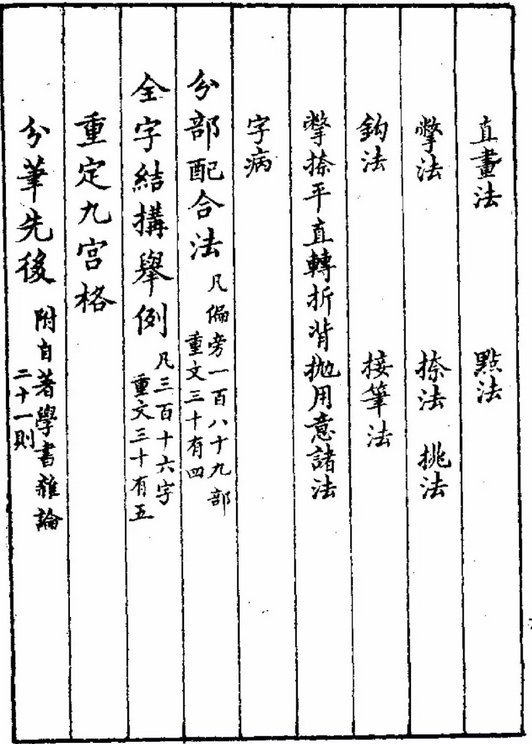 直畫法 點法
撆法 捺法 挑法
鈎法 接筆法
撆捺平直轉折背拋用意諸法
字病
分部配合法 凡偏旁一百八十九部 重文三十有四
全字結搆舉例 凡三百十六字 重文三十有五
重定九宮格
分筆先後 附自著學書雜論 二十一則